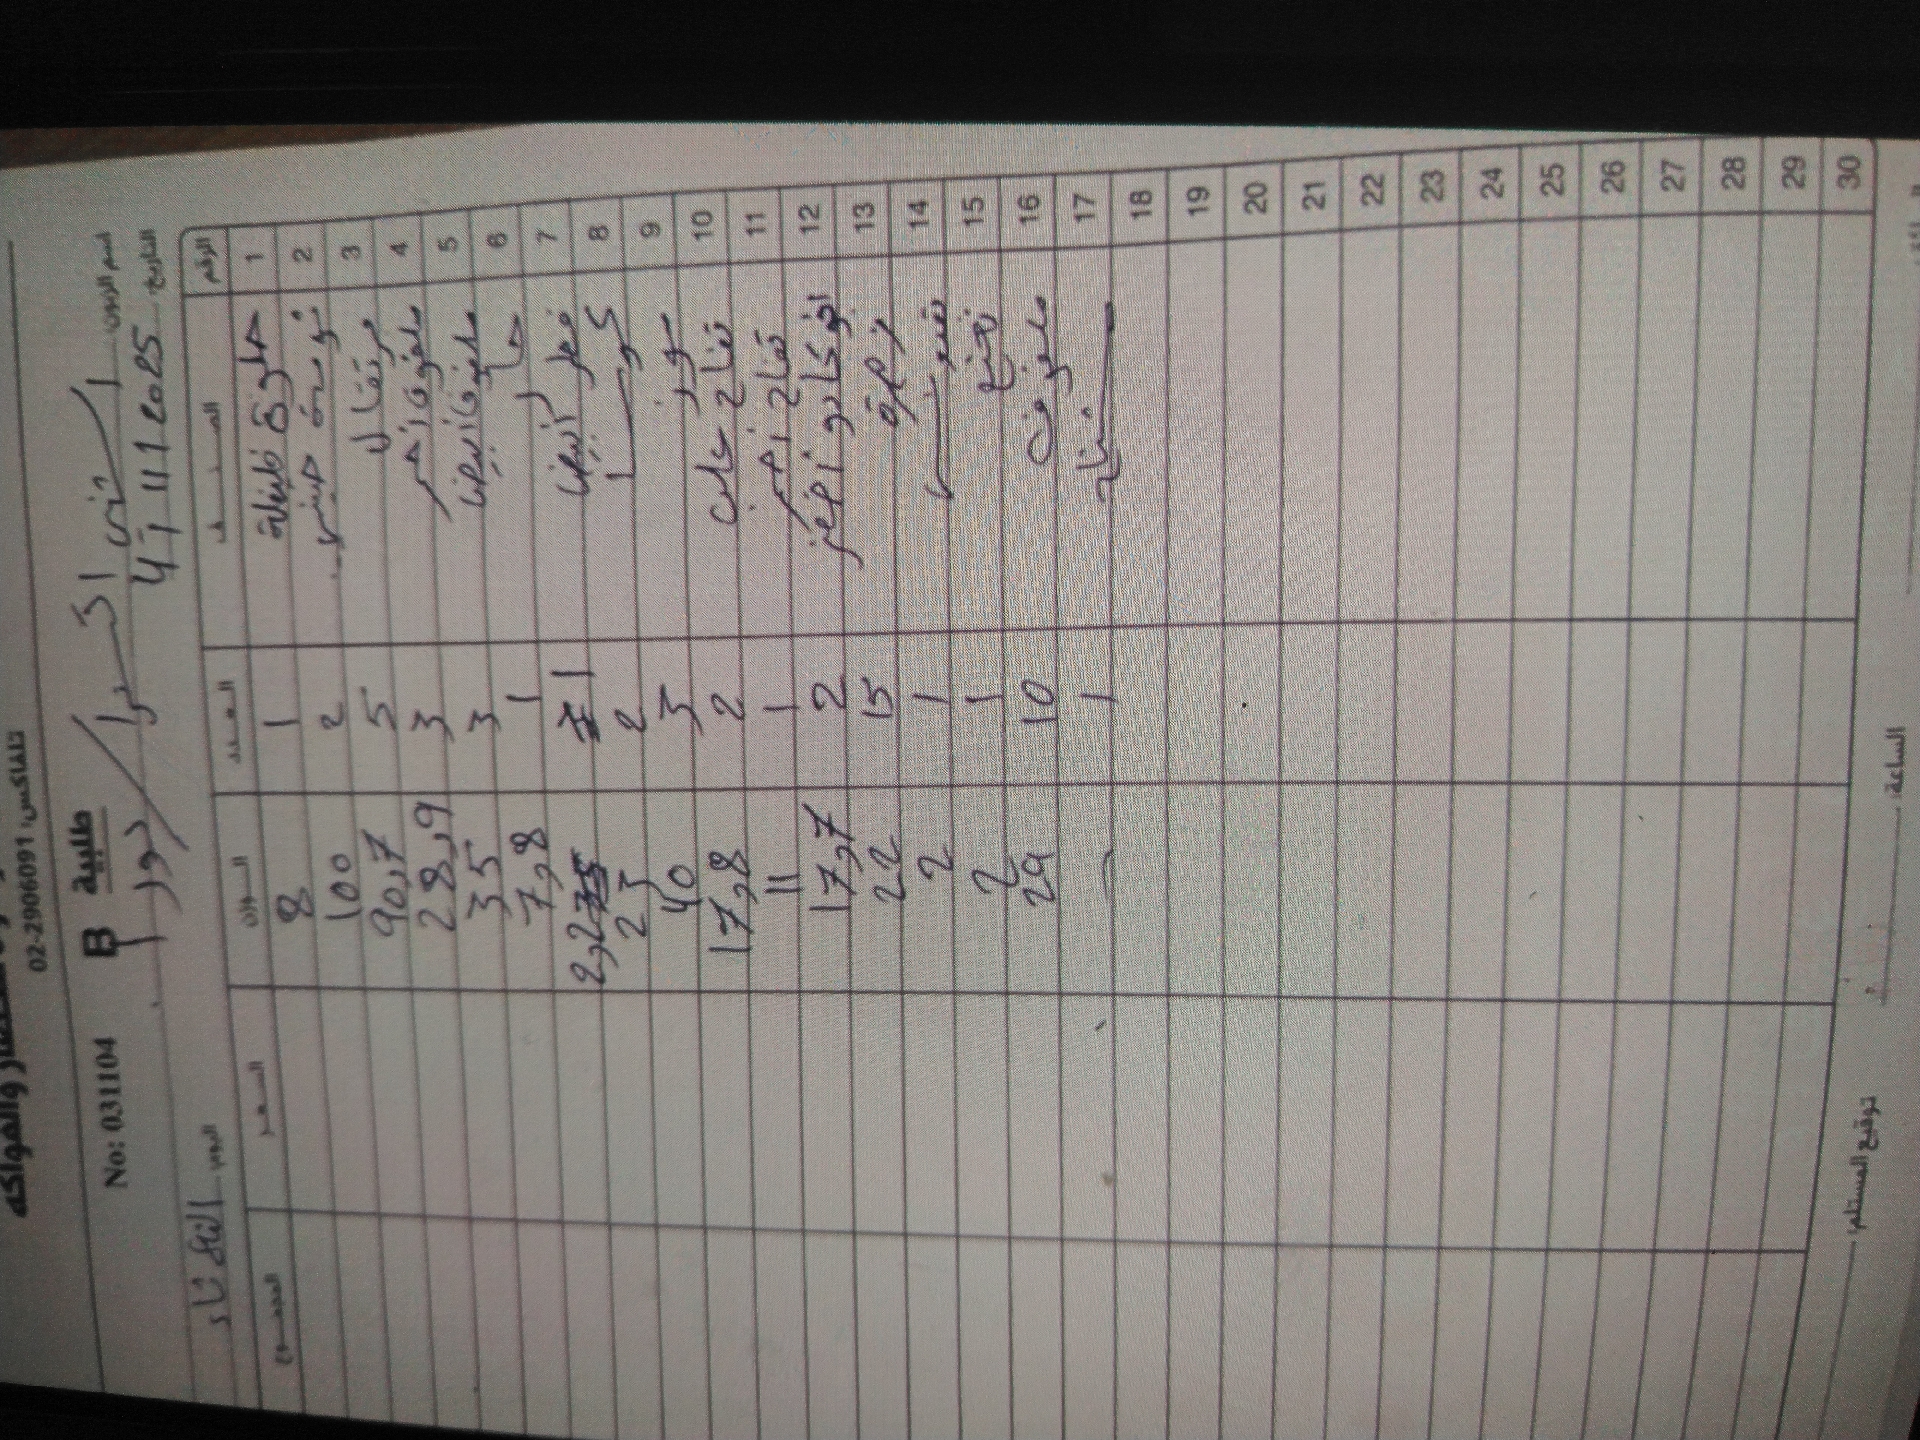 والفواكه
تلفاكس: 02-2906091
No: 031104 B طلبية
اسم الزبون
التاريخ 4 / 11 / 2025 اليوم الثلاثاء
الرقم الصنف العدد الوزن السعر المجموع
1 حلوة 1 8
2 2 100
3 برتقال 5 90,7
4 ملفوف احمر 3 28,9
5 ملفوف أبيض 3 35
6 1 7,8
7 فطر أبيض 1 2,2
8 كوسا 2 23
9 موز 3 40
10 تفاح 2 17,8
11 تفاح احمر 1 11
12 افوكادو اخضر 2 17,7
13 زهرة 15 22
14 1 2
15 نعنع 1 2
16 ملفوف 10 29
17 1
18
19
20
21
22
23
24
25
26
27
28
29
30
الساعة توقيع المستلم